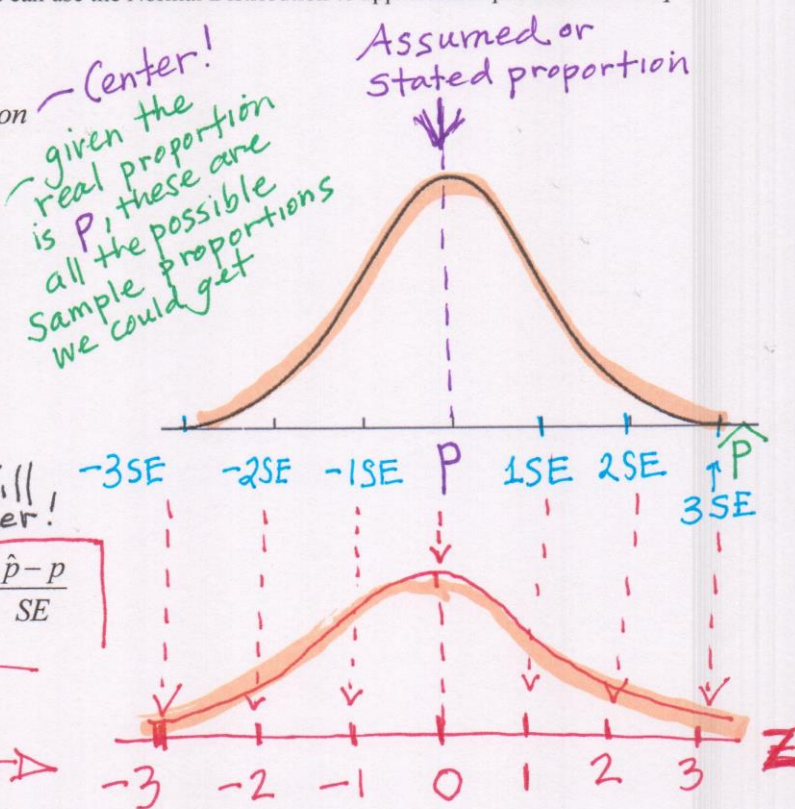 can use the Normal
Assumed or
stated proportion
on
Center!
given the
real proportion
is P, these are
all the possible
sample proportions
we could get
-3SE -2SE -1SE P 1SE 2SE 3SE P̂
ill
er!
p̂ - p
SE
-3 -2 -1 0 1 2 3 Z